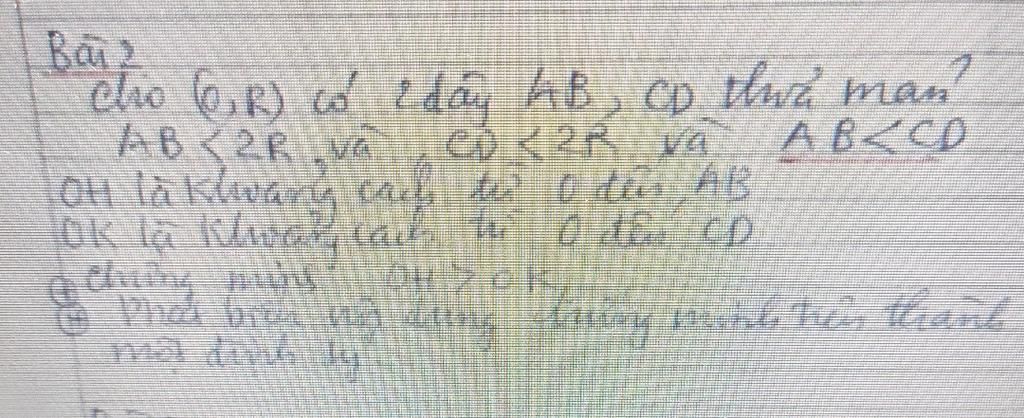 Bài 2
Cho (O,R) có 2 dây AB, CD thoả mãn
AB < 2R, và, CD < 2R và AB < CD
OH là khoảng cách từ O đến AB
OK là khoảng cách từ O đến CD
Chứng minh OH > OK
Phát biểu nội dung chứng minh trên thành
một định lý